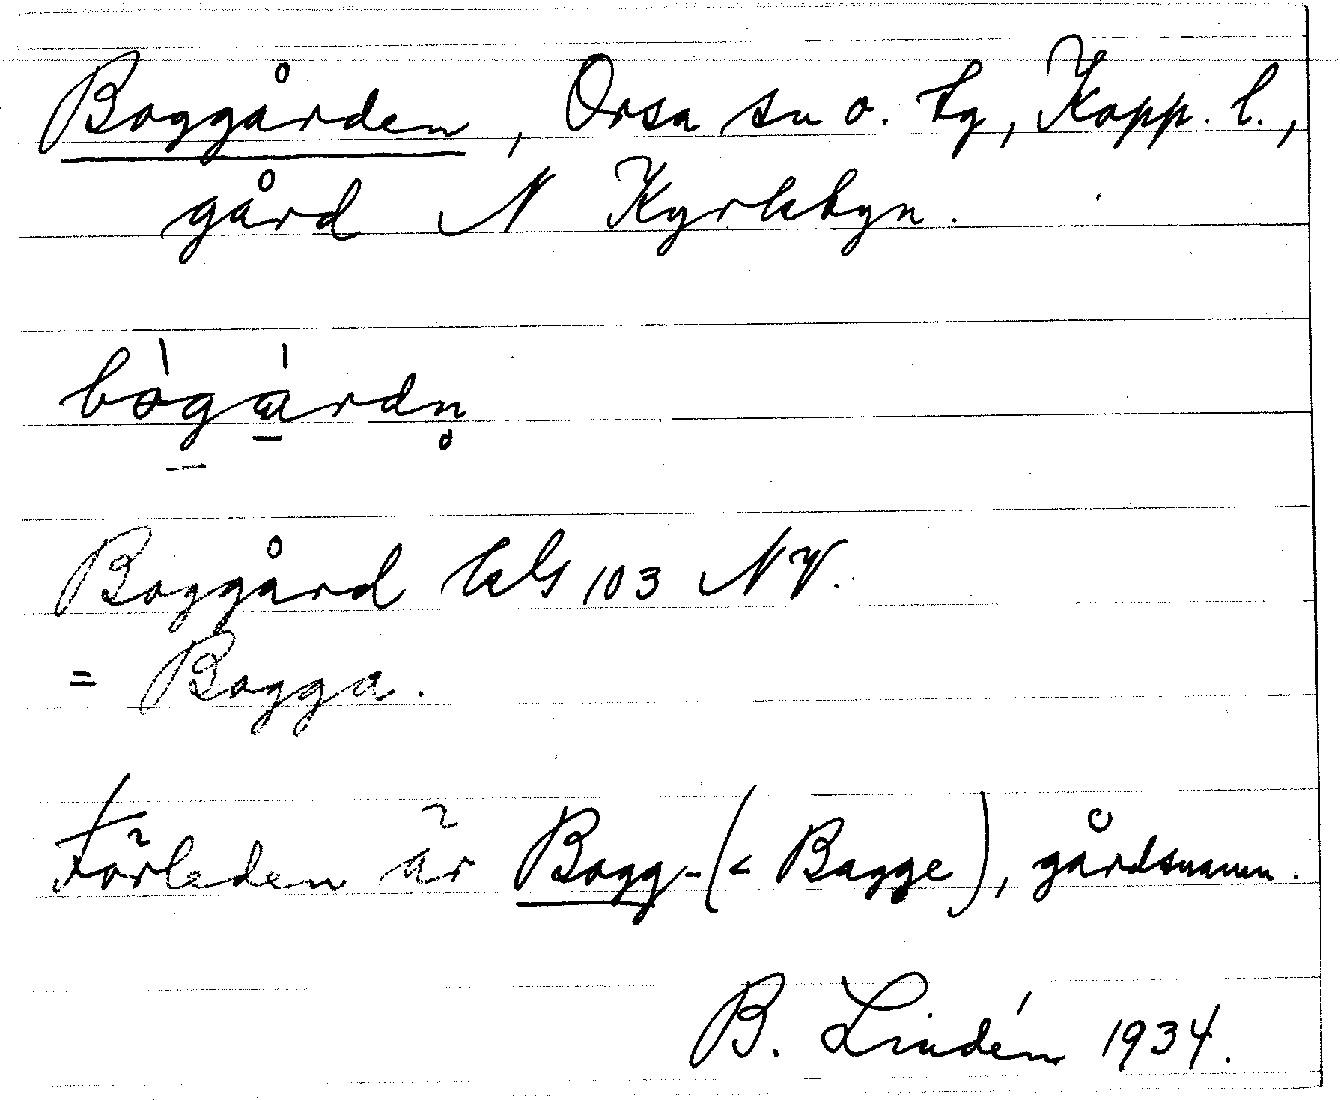 Boggården, Orsa sn o. tg, Kopp. l.,
gård N Kyrkbyn.
bògárdn̥
Boggård kbG 103 NV.
= Bogga.
Förleden är Bogg- (< Bagge), gårdsnamn.
B. Lindén 1934.